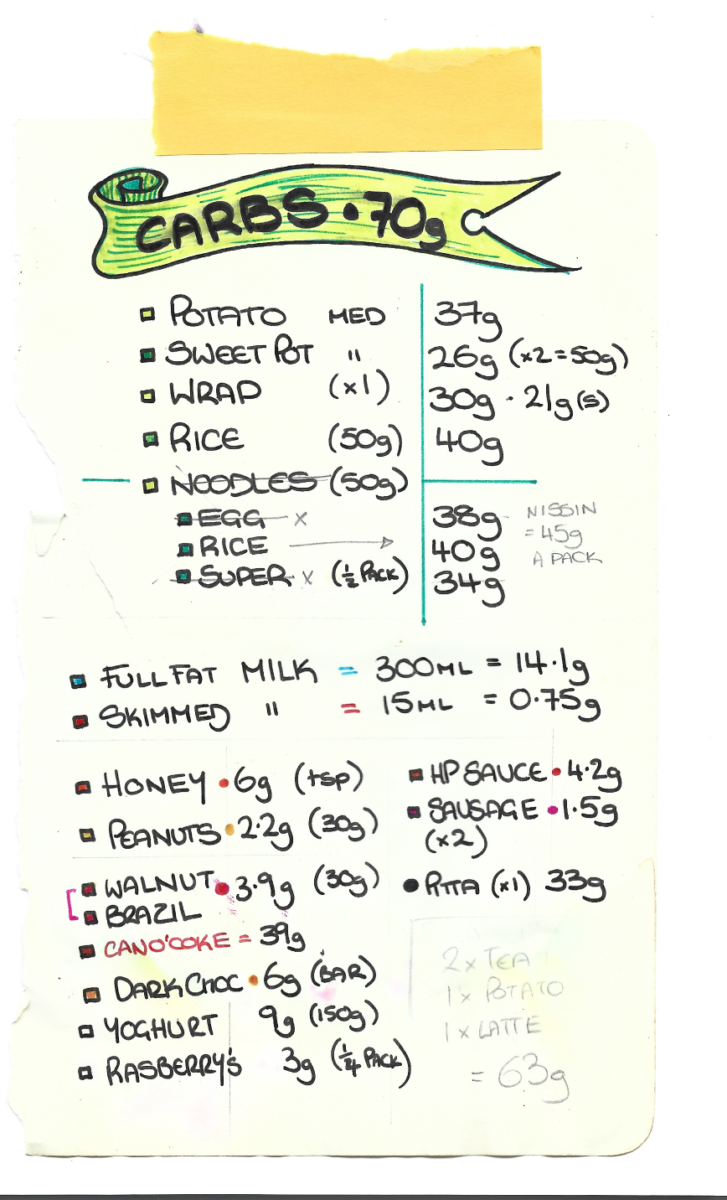 CARBS • 70g
POTATO MED 37g
SWEET POT " 26g (x2=50g)
WRAP (x1) 30g · 21g(s)
RICE (50g) 40g
NOODLES (50g)
EGG x 38g
RICE → 40g
SUPER x (½ PACK) 34g
NISSIN
= 45g
A PACK
FULL FAT MILK = 300ML = 14·1g
SKIMMED " = 15ML = 0·75g
HONEY • 6g (tsp)
PEANUTS • 2·2g (30g)
WALNUT • 3·9g (30g)
BRAZIL
CAN O' COKE = 39g
DARK CHOC • 6g (BAR)
YOGHURT 9g (150g)
RASBERRY'S 3g (¼ PACK)
HP SAUCE • 4·2g
SAUSAGE • 1·5g
(x2)
PITTA (x1) 33g
2 x TEA
1 x POTATO
1 x LATTE
= 63g